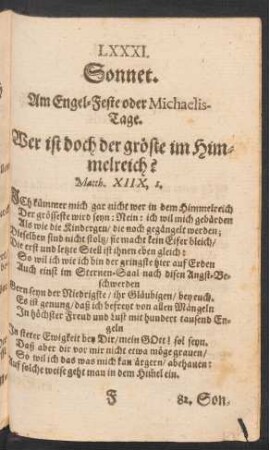 LXXXI.
Sonnet.
Am Engel-Feste oder Michaelis-
Tage.
Wer ist doch der gröste im Him-
melreich?
Matth. XIIX, 1.
ICh kümmer mich gar nicht wer in dem Himmelreich
Der grösseste wird seyn: Nein: ich wil mich gebärden
Als wie die Kindergen / die noch gegängelt werden;
Dieselben sind nicht stoltz / sie macht kein Eifer bleich /
Die erst und letzte Stell ist ihnen eben gleich:
So wil ich wie ich bin der geringste hier auf Erden
Auch einst im Sternen-Saal nach disen Angst-Be-
schwerden
Gern seyn der Niedrigste / ihr Gläubigen / bey euch.
Es ist genung / daß ich befreyt von allen Mängeln
In höchster Freud und Lust mit hundert tausend En-
geln
In steter Ewigkeit bey Dir / mein GOtt! sol seyn.
Daß aber dir vor mir nicht etwa möge grauen /
So wil ich das was mich kan ärgern / abehauen:
Auf solche weise geht man in dem Himel ein.
F
82. Son-